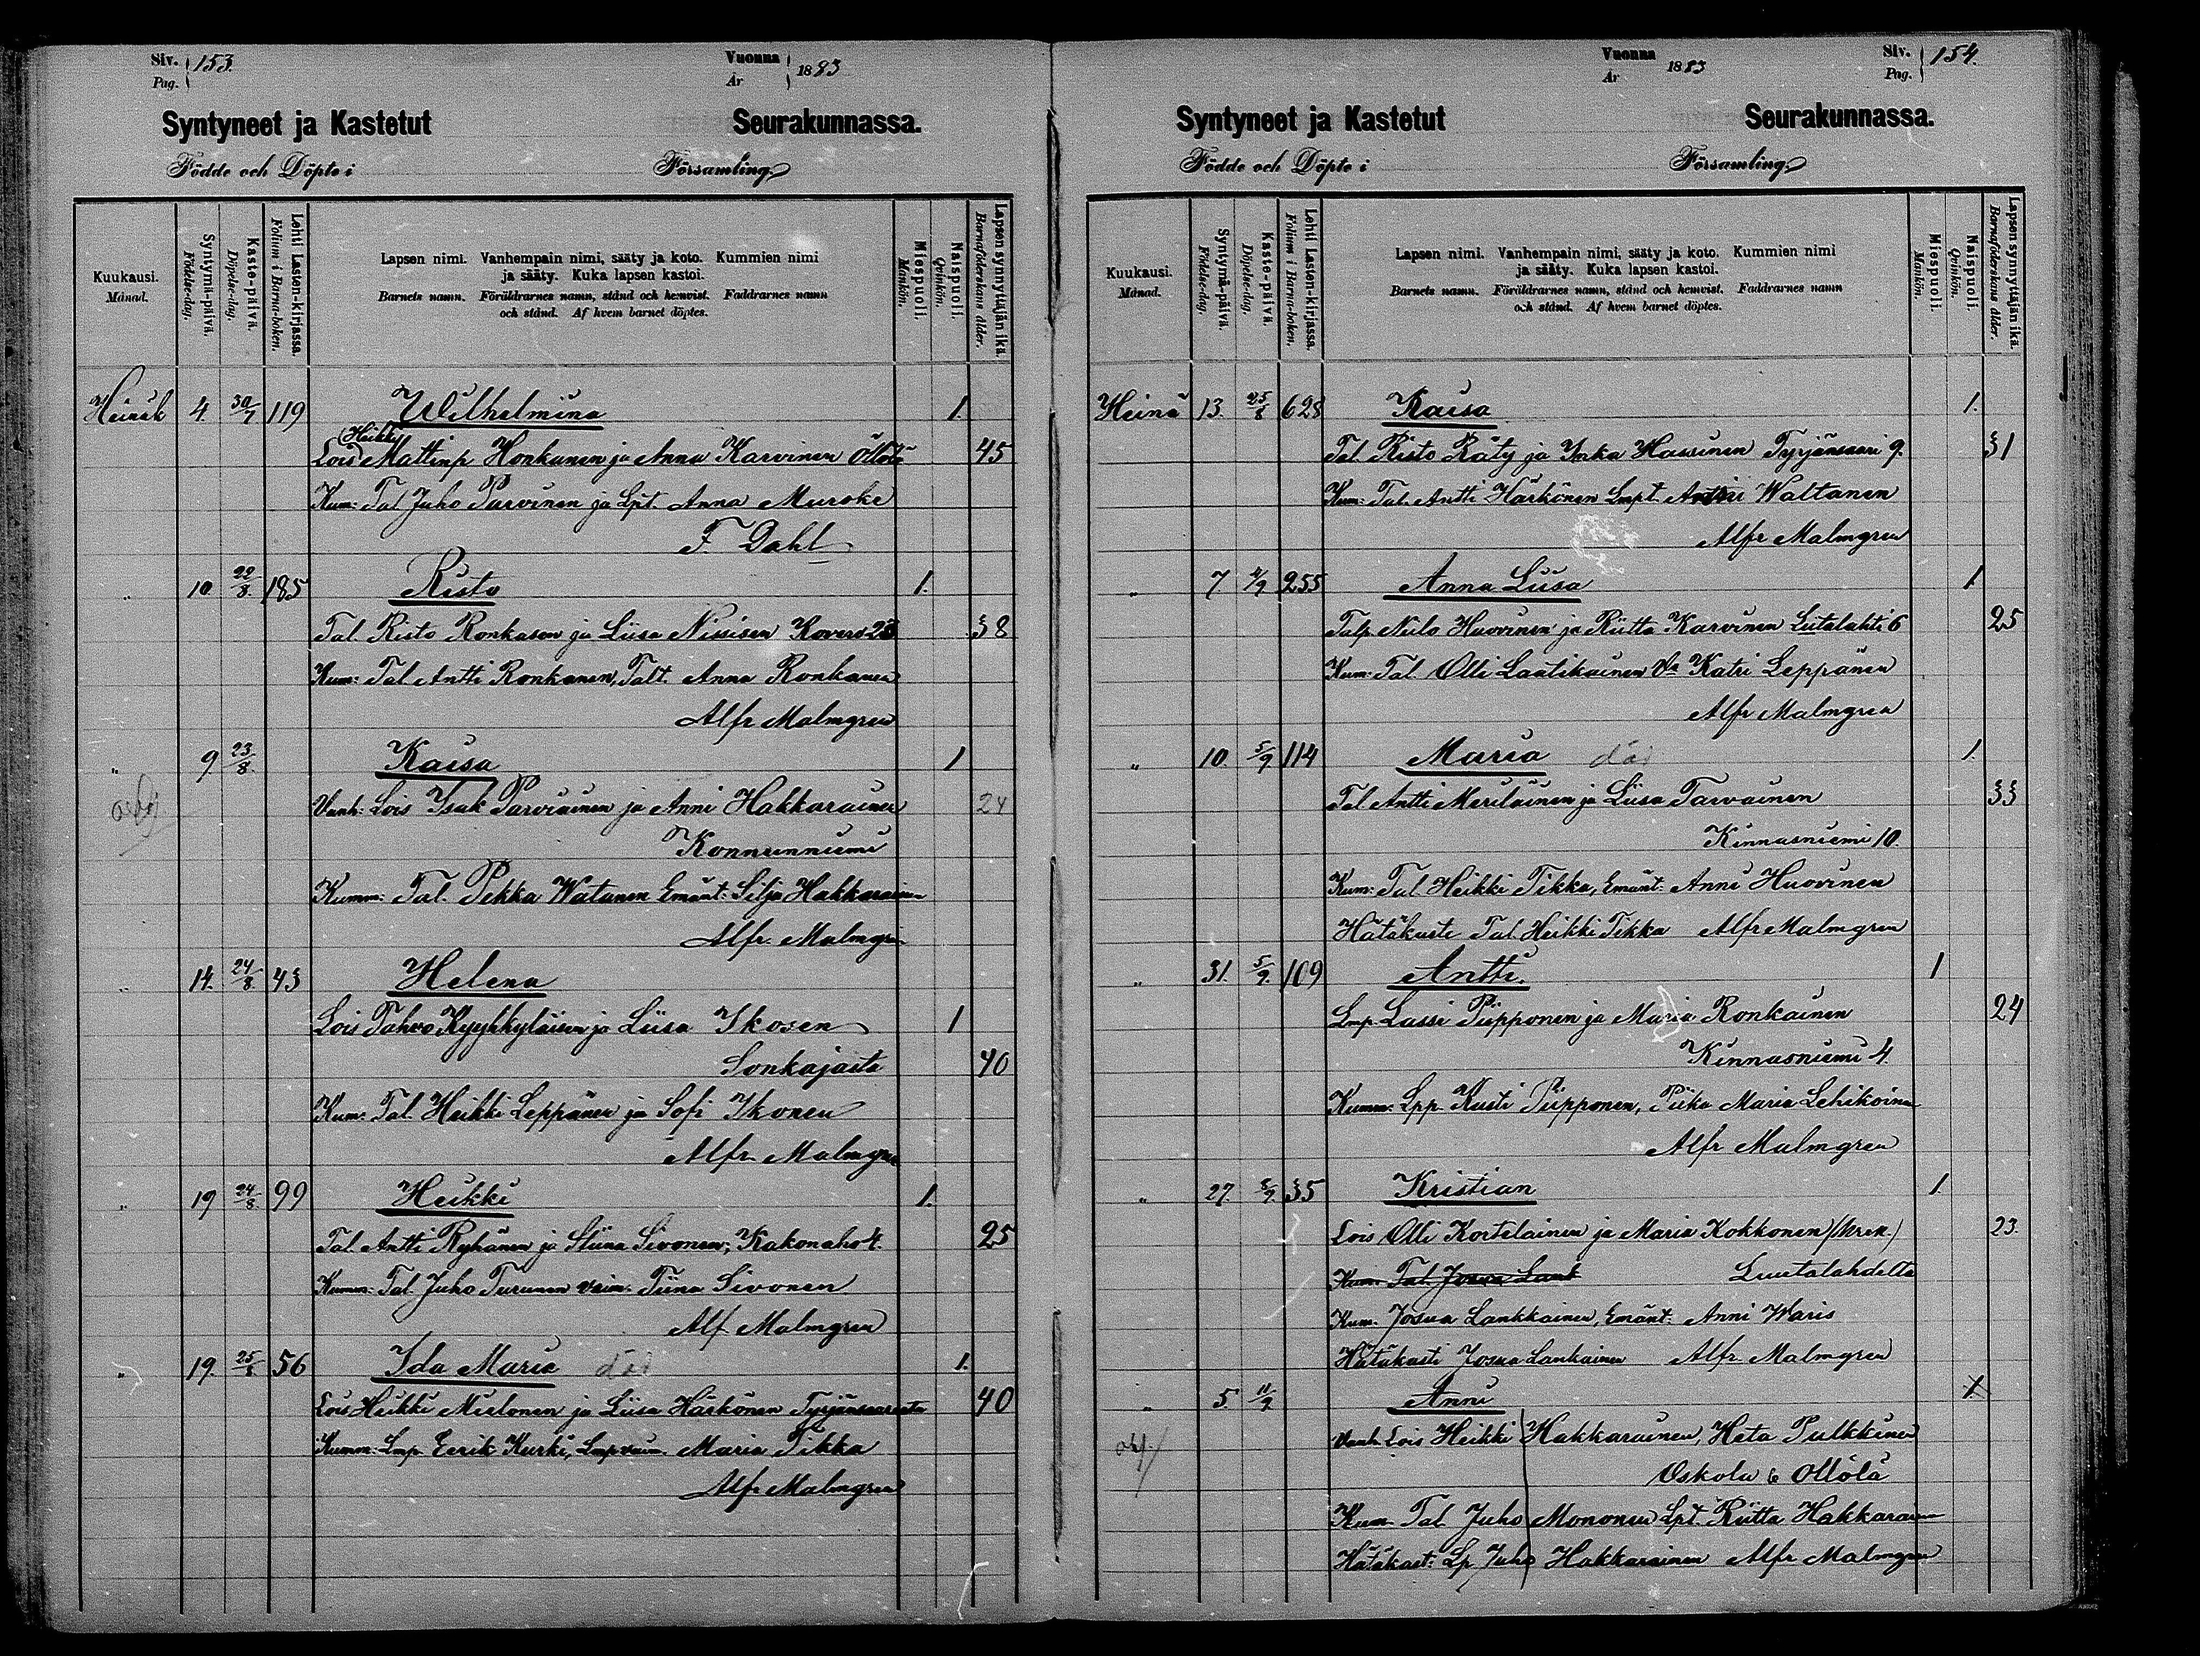 Siv. Pag. 153.
Vuonna År 1883
Syntyneet ja Kastetut Seurakunnassa.
Födde och Döpte i Församling.
Kuukausi. Månad.
Syntymä-päivä. Födelse-dag.
Kaste-päivä. Döpelse-dag.
Lehti Lasten-kirjassa. Folium i Barna-boken.
Lapsen nimi. Vanhempain nimi, sääty ja koto. Kummien nimi
ja sääty. Kuka lapsen kastoi.
Barnets namn. Föräldrarnes namn, stånd och hemvist. Faddrarnes namn
och stånd. Af hvem barnet döptes.
Miespuoli. Mankön.
Naispuoli. Qvinkön.
Lapsen synnyttäjän ikä. Barnaföderskans ålder.
Heinäk 4. 30/7 119 Wilhelmina 1.
Heikki
Lois Mattinp Honkanen ja Anna Karvinen 45
Kum: Tal Juho Parvinen ja Lpt. Anna Muroke
F. Dahl
" 10 22/8. 185 Risto 1.
Tal Risto Ronkasen ja Liisa Nissisen Kovero 28 38
Kum: Tal Antti Ronkanen, Talt. Anna Ronkanen
Alfr Malmgren
" 9 23/8. Kaisa 1
Vanh: Lois Isak Parviainen ja Anni Hakkarainen 24
Konnunniemi
Kumm: Tal. Pekka Watanen Emänt: Silja Hakkarainen
Alfr. Malmgren
" 14. 24/8. 43 Helena
Lois Tahvo Kyyhkyläisen ja Liisa Ikosen 1
Sonkajasta 40
Kum: Tal. Heikki Leppänen ja Sofi Ikonen
Alfr. Malmgren
" 19 24/8. 99 Heikki 1.
Tal Antti Ryhänen ja Stiina Sivonen; Kakonaho 4. 25
Kumm: Tal Juho Turunen vaim. Tiina Sivonen
Alf Malmgren
" 19. 25/8 56 Ida Maria död 1.
Lois Heikki Mielonen ja Liisa Härkönen Tyrjänsaaresta 40
Kumm: Lmp Eerik Kurki, Lmp vaim. Maria Tikka
Alfr Malmgren
Vuonna År 1883
Siv. Pag. 154.
Syntyneet ja Kastetut Seurakunnassa.
Födde och Döpte i Församling.
Kuukausi. Månad.
Syntymä-päivä. Födelse-dag.
Kaste-päivä. Döpelse-dag.
Lehti Lasten-kirjassa. Folium i Barna-boken.
Lapsen nimi. Vanhempain nimi, sääty ja koto. Kummien nimi
ja sääty. Kuka lapsen kastoi.
Barnets namn. Föräldrarnes namn, stånd och hemvist. Faddrarnes namn
och stånd. Af hvem barnet döptes.
Miespuoli. Mankön.
Naispuoli. Qvinkön.
Lapsen synnyttäjän ikä. Barnaföderskans ålder.
Heinä 13. 25/8 628 Kaisa 1.
Tal Risto Räty ja Inka Hassinen Tyrjänsaari 9. 31
Kum: Tal. Antti Härkönen Lmpt. Waltanen
Alfr Malmgren
" 7. 4/9 255 Anna Liisa 1
Talp. Niilo Huovinen ja Riitta Karvinen Liutalahti 6 25
Kum: Tal. Olli Laatikainen Va Katri Leppänen
Alfr Malmgren
" 10. 5/9 114 Maria död 1.
Tal Antti Meriläinen ja Liisa Tarvainen 33
Kinnasniemi 10.
Kum: Tal. Heikki Tikka, Emänt: Anni Huovinen
Hätäkasti Tal. Heikki Tikka Alfr Malmgren
" 31. 5/9. 109 Antti. 1
Lmp Lassi Piipponen ja Maria Ronkainen 24
Kinnasniemi 4.
Kumm: Lpp. Kusti Piipponen, Piika Maria Lehikoinen
Alfr Malmgren
" 27 8/9. 35 Kristian 1.
Lois Olli Kortelainen ja Maria Kokkonen 23.
Kum: Tal. Josua Lank Luutalahdelta
Kum. Josua Lankkainen, Emänt: Anni Waris
Hätäkasti Josua Lankainen Alfr. Malmgren
" 5. 11/9 Anni
Vanh. Lois Heikki Hakkarainen, Heta Pulkkinen
Oskola 6 Ollölä
Kum. Tal. Juho Mononen Lpt. Riitta Hakkarainen
Hätäkast: Lp Juho Hakkarainen Alfr Malmgren